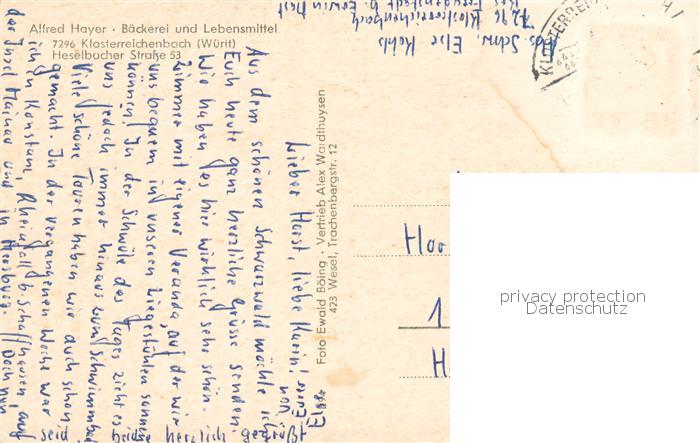 Alfred Hayer · Bäckerei und Lebensmittel
7296 Klosterreichenbach (Württ)
Heselbacher Straße 53
Lieber Horst, liebe Karin!
Aus dem schönen Schwarzwald möchte ich
Euch heute ganz herzliche Grüsse senden.
Wir haben es hier wirklich sehr schön.
Zimmer mit eigener Veranda, auf der wir
uns bequem in unseren Liegestühlen sonnen
können. In der Schwüle des Tages zieht es
uns jedoch immer hinaus zum Schwimmbad
Viele schöne Touren haben wir auch schon
gemacht. In der vergangenen Woche war
ich in Konstanz, Rheinfall b. Schaffhausen, auf
der Insel Mainau und in Meersburg. Doch nun
seid herzlich gegrüßt
von Eurer
Else
Foto Ewald Böing · Vertrieb Alex Wardthuysen
423 Wesel, Trachenbergstr. 12
Abs. Schw. Else Kohls
7296 Klosterreichenbach
b. Erwin Mast
Hoo
1
H
privacy protection
Datenschutz